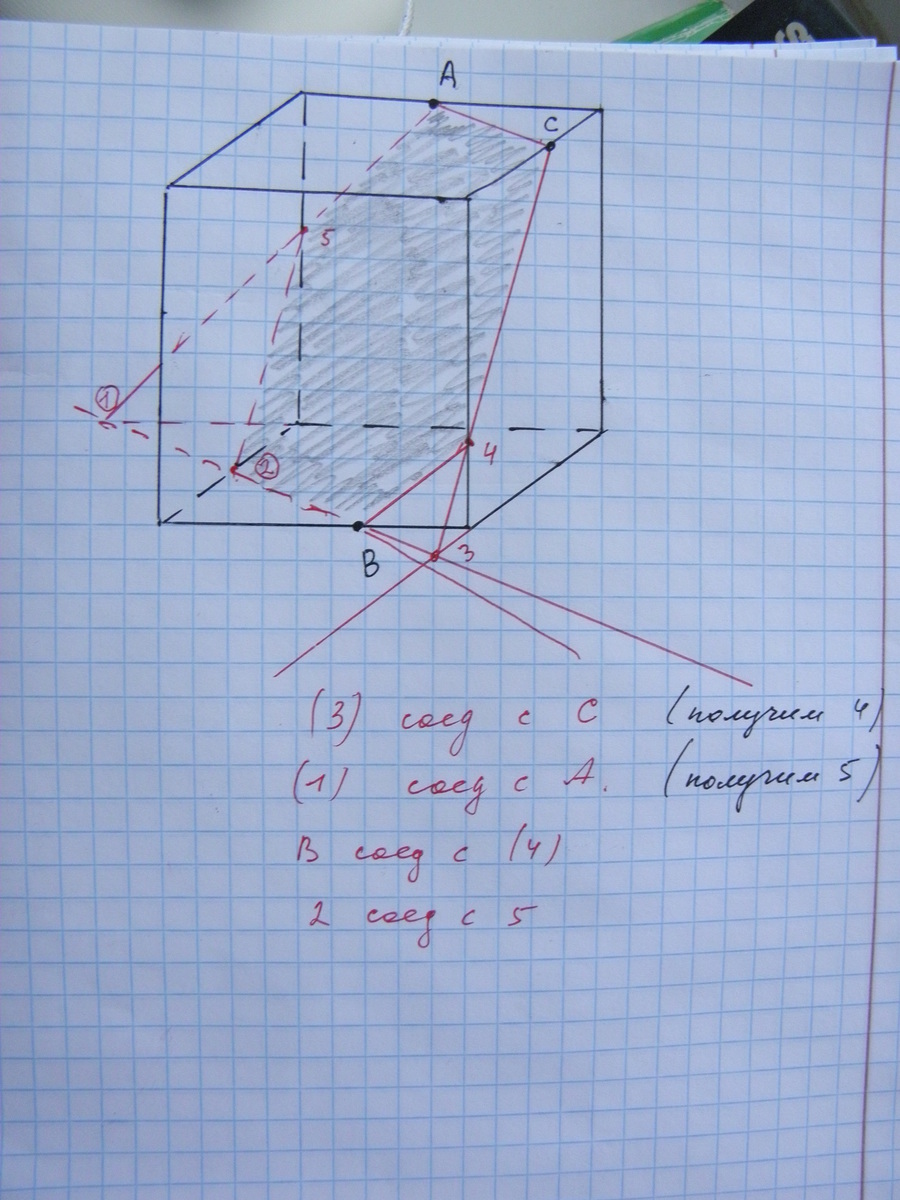 A
C
5
1
2
4
B
3
(3) соед с С (получим 4)
(1) соед с А. (получим 5)
В соед с (4)
2 соед с 5